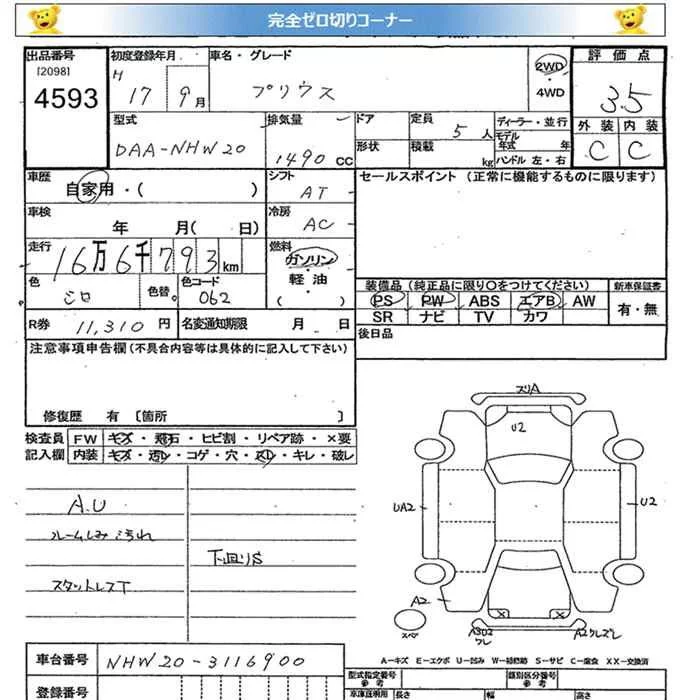 完全ゼロ切りコーナー
出品番号
[2098]
4593
初度登録年月
H 17 9 月
車名・グレード
プリウス
2WD
・
4WD
評価点
3.5
外装 内装
C C
型式
DAA-NHW20
排気量
1490 CC
ドア
形状
定員
5 人
積載
kg
ディーラー・並行
モデル
年式 年
ハンドル 左・右
車歴
自家用・( )
シフト
AT
車検
年 月( 日)
冷房
AC
走行
16万6千793km
燃料
ガソリン
・
軽油
・
( )
色
シロ
色替
色コード
062
R券 11,310 円
名変通知期限 月 日
セールスポイント (正常に機能するものに限ります)
装備品 (純正品に限り○をつけてください)
新車保証書
PS PW ABS エアB AW
SR ナビ TV カワ
有・無
後日品
注意事項申告欄(不具合内容等は具体的に記入して下さい)
修復歴 有 〔箇所 〕
検査員
記入欄
FW キズ・飛石・ヒビ割・リペア跡・×要
内装 キズ・汚レ・コゲ・穴・スレ・キレ・破レ
A.U
ルームしみ汚れ
スタットレスT
下廻りS
スリA
U2
UA2
U2
A2
スペア
A302
ワレ
A2クレズレ
A-キズ E-エクボ U-凹み W-補修跡 S-サビ C-腐食 XX-交換済
車台番号 NHW20-3116900
登録番号
型式指定番号
参考
類別区分番号
参考
車庫証明用
長さ 幅 高さ